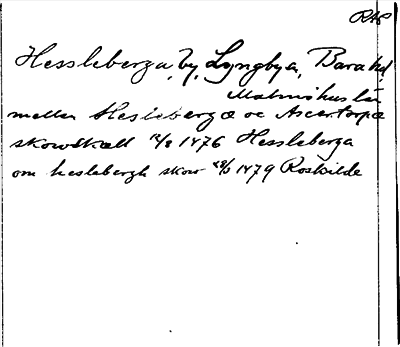 RAP
Hessleberga, by, Lyngby s, Bara hd
Malmöhus län
mellan Heslebergæ oc Ascertorpæ
skowskæll 12/2 1476 Hessleberga
om heslebergh skow 1479 Roskilde